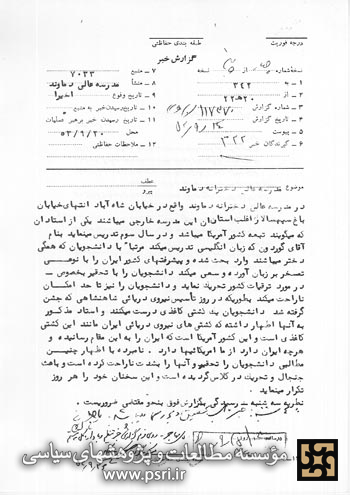 درجه فوریت
طبقه بندی حفاظتی
گزارش خبر
نسخه شماره از نسخه
۷ - منبع ۷۰۳۳
۱ - به ۳۲۲
۸ - منشأ مدرسه عالی دماوند
۲ - از ۲۰ه۲۲
۹ - تاریخ وقوع اخیرا
۳ - شماره گزارش
۱۰ - تاریخ رسیدن خبر به منبع
۴ - تاریخ گزارش
۱۱ - تاریخ رسیدن خبر برهبر عملیات
۵ - پیوست
محل ۵۳/۹/۲۰
۶ - گیرندگان خبر ۳۲۲
۱۲ - ملاحظات حفاظتی
موضوع مدرسه عالی دخترانه دماوند
عطف
پیرو
در مدرسه عالی دخترانه دماوند واقع در خیابان شاه آباد انتهای خیابان
باغ سپهسالار اغلب استادان این مدرسه خارجی میباشند یکی از استادان
که میگویند تبعه کشور آمریکا میباشد و در سال سوم تدریس مینماید بنام
آقای گوردون که زبان انگلیسی تدریس میکند مرتبا" با دانشجویان که همگی
دختر میباشند وارد بحث شده و پیشرفتهای کشور ایران را با نوعی
تمسخر بر زبان آورده و سعی میکند دانشجویان را با تحقیر بخصوص -
در مورد ترقیات کشور تحریک نماید و دانشجویان را نیز تا حد امکان
ناراحت میکند بطوریکه در روز تأسیس نیروی دریائی شاهنشاهی که جشن
گرفته شد دانشجویان یک کشتی کاغذی درست میکنند و استاد مذکور
به آنها اظهار داشته که کشتی های نیروی دریائی ایران مانند این کشتی
کاغذی است و این کشور آمریکا است که ایران را به این مقام رسانیده و
هرچه ایران دارد از ما امریکائیها دارد . نامبرده با اظهار چنین
مطالبی دانشجویان را تحقیر و آنها را بشدت ناراحت کرده است و باعث
جنجال و تحریک در کلاس گردیده است و این سخنان خود را هر روز
تکرار مینماید .
نظریه سه شنبه - رسیدگی بگزارش فوق بنحو مقتضی ضروریست .
مؤسسه مطالعات و پژوهشهای سیاسی
www.psri.ir